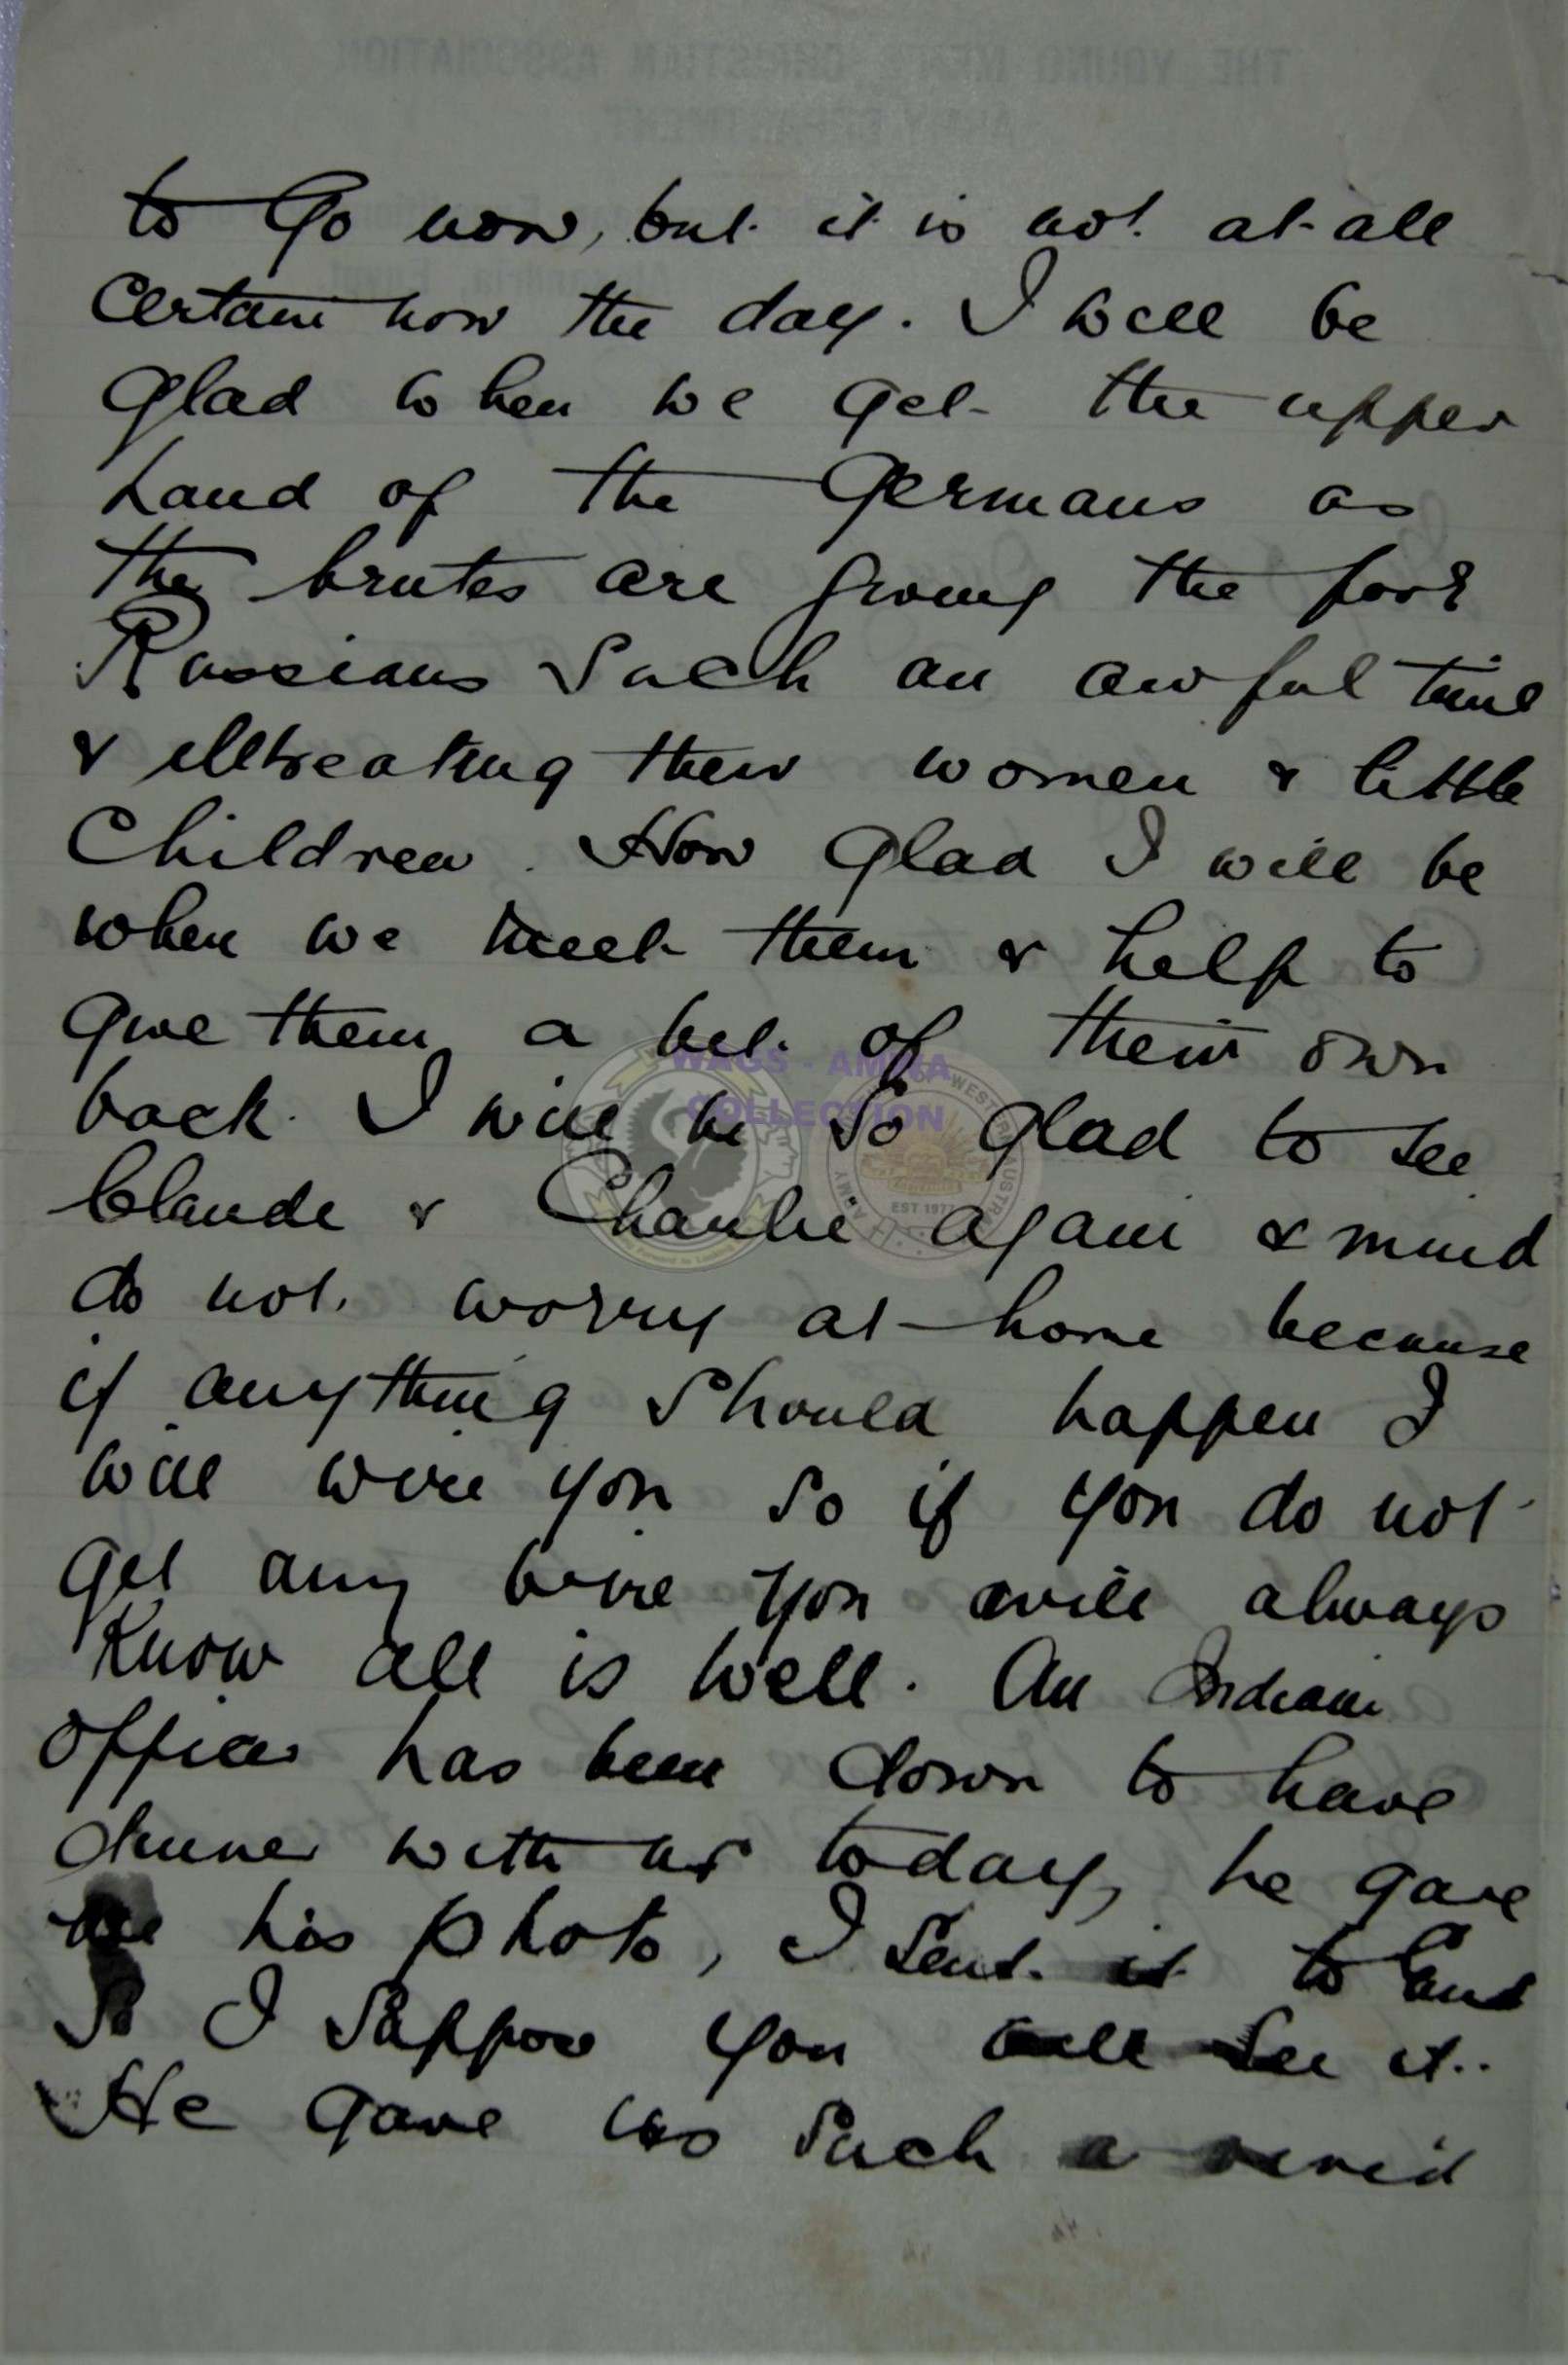 to Go now, but it is not at all
Certain now the day. I will be
Glad when we Get the upper
hand of the Germans as
the brutes are giving the poor
Russians Such an awful time
& illtreating their women & little
Children. How Glad I will be
when we meet them & help to
Give them a bit of their own
back. I will be So Glad to see
Claude & Charlie again & mind
do not worry at home because
if anything Should happen I
will wire you So if you do not
Get any wire you will always
Know all is well. An Indian
Officer has been down to have
dinner with us today, he gave
me his photo, I Sent it to
So I Suppose you will See it.
He Gave us Such a vivid
WAGS - AMHA
COLLECTION
EST 1977